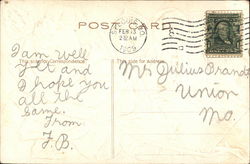 POST CARD
FEB 13
2-12 AM
1909
This side for Correspondence.
I am well
yet and
I hope you
all the
same.
From
F.B.
Mrs Julius Brandt
Union
Mo.